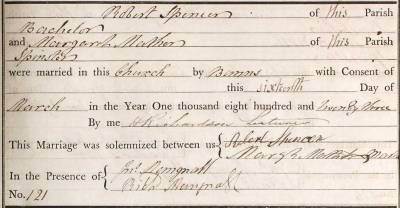 Robert Spencer of this Parish
Bachelor
and Margaret Mather of this Parish
Spinster
were married in this Church by Banns with Consent of
this sixteenth Day of
March in the Year One thousand eight hundred and twenty three
By me Richardson
This Marriage was solemnized between us Robert Spencer
In the Presence of
No. 121